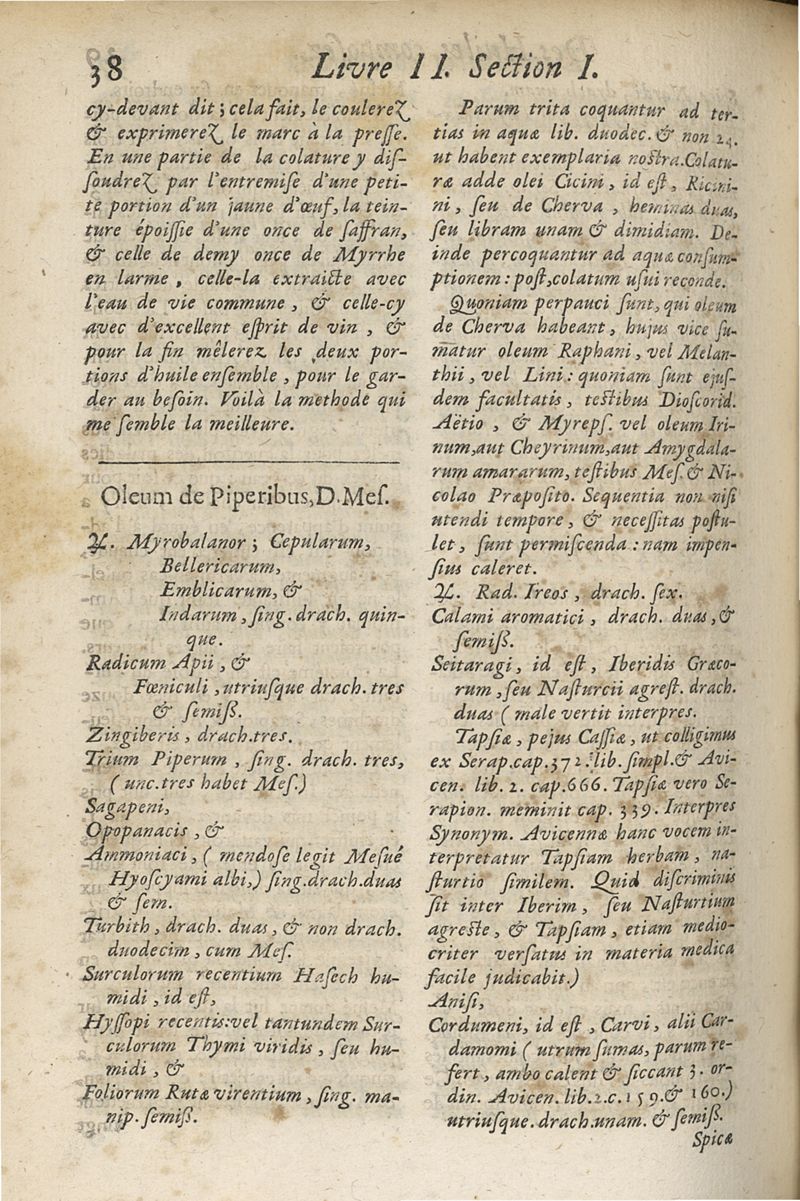 38 Livre II. Section I.
cy-devant dit ; cela fait, le coulereƶ
& exprimereƶ le marc à la preſſe.
En une partie de la colature y diſ-
ſoudreƶ par l'entremiſe d'une peti-
te portion d'un jaune d'œuf, la tein-
ture époiſſie d'une once de ſaffran,
& celle de demy once de Myrrhe
en larme, celle-la extraicte avec
l'eau de vie commune, & celle-cy
avec d'excellent eſprit de vin, &
pour la fin mêlerez les deux por-
tions d'huile enſemble, pour le gar-
der au beſoin. Voilà la methode qui
me ſemble la meilleure.
Oleum de Piperibus, D. Meſ.
♃. Myrobalanor ; Cepularum,
Bellericarum,
Emblicarum, &
Indarum, ſing. drach. quin-
que.
Radicum Apii, &
Fœniculi, utriuſque drach. tres
& ſemiß.
Zingiberis, drach. tres.
Trium Piperum, ſing. drach. tres,
( unc. tres habet Meſ.)
Sagapeni,
Opopanacis, &
Ammoniaci, ( mendoſe legit Meſué
Hyoſcyami albi,) ſing. drach. duas
& ſem.
Turbith, drach. duas, & non drach.
duodecim, cum Meſ.
Surculorum recentium Haſech hu-
midi, id eſt,
Hyſſopi recentis: vel tantundem Sur-
culorum Thymi viridis, ſeu hu-
midi, &
Foliorum Rutæ virentium, ſing. ma-
nip. ſemiß.
Parum trita coquantur ad ter-
tias in aquæ lib. duodec. & non 24.
ut habent exemplaria noſtra. Colatu-
ræ adde olei Cicini, id eſt, Ricini-
ni, ſeu de Cherva, heminas duas,
ſeu libram unam & dimidiam. De-
inde percoquantur ad aquæ conſum-
ptionem : poſt, colatum uſui reconde.
Quoniam perpauci ſunt, qui oleum
de Cherva habeant, hujus vice ſu-
matur oleum Raphani, vel Melan-
thii, vel Lini : quoniam ſunt ejuſ-
dem facultatis, teſtibus Dioſcorid.
Aëtio, & Myrepſ. vel oleum Iri-
num, aut Cheyrinum, aut Amygdala-
rum amararum, teſtibus Meſ. & Ni-
colao Præpoſito. Sequentia non niſi
utendi tempore, & neceſſitas poſtu-
let, ſunt permiſcenda : nam impen-
ſius caleret.
♃. Rad. Ireos, drach. ſex.
Calami aromatici, drach. duas, &
ſemiß.
Seitaragi, id eſt, Iberidis Græco-
rum, ſeu Naſturcii agreſt. drach.
duas ( male vertit interpres.
Tapſiæ, pejus Caſſiæ, ut colligimus
ex Serap. cap. 372. lib. ſimpl. & Avi-
cen. lib. 2. cap. 666. Tapſiæ vero Se-
rapion. meminit cap. 339. Interpres
Synonym. Avicennæ hanc vocem in-
terpretatur Tapſiam herbam, na-
ſturtio ſimilem. Quid diſcriminis
ſit inter Iberim, ſeu Naſturtium
agreſte, & Tapſiam, etiam medio-
criter verſatus in materia medica
facile judicabit.)
Aniſi,
Cordumeni, id eſt, Carvi, alii Car-
damomi ( utrum ſumas, parum re-
fert, ambo calent & ſiccant 3. or-
din. Avicen. lib. 2. c. 159. & 160.)
utriuſque. drach. unam. & ſemiß.
Spicæ